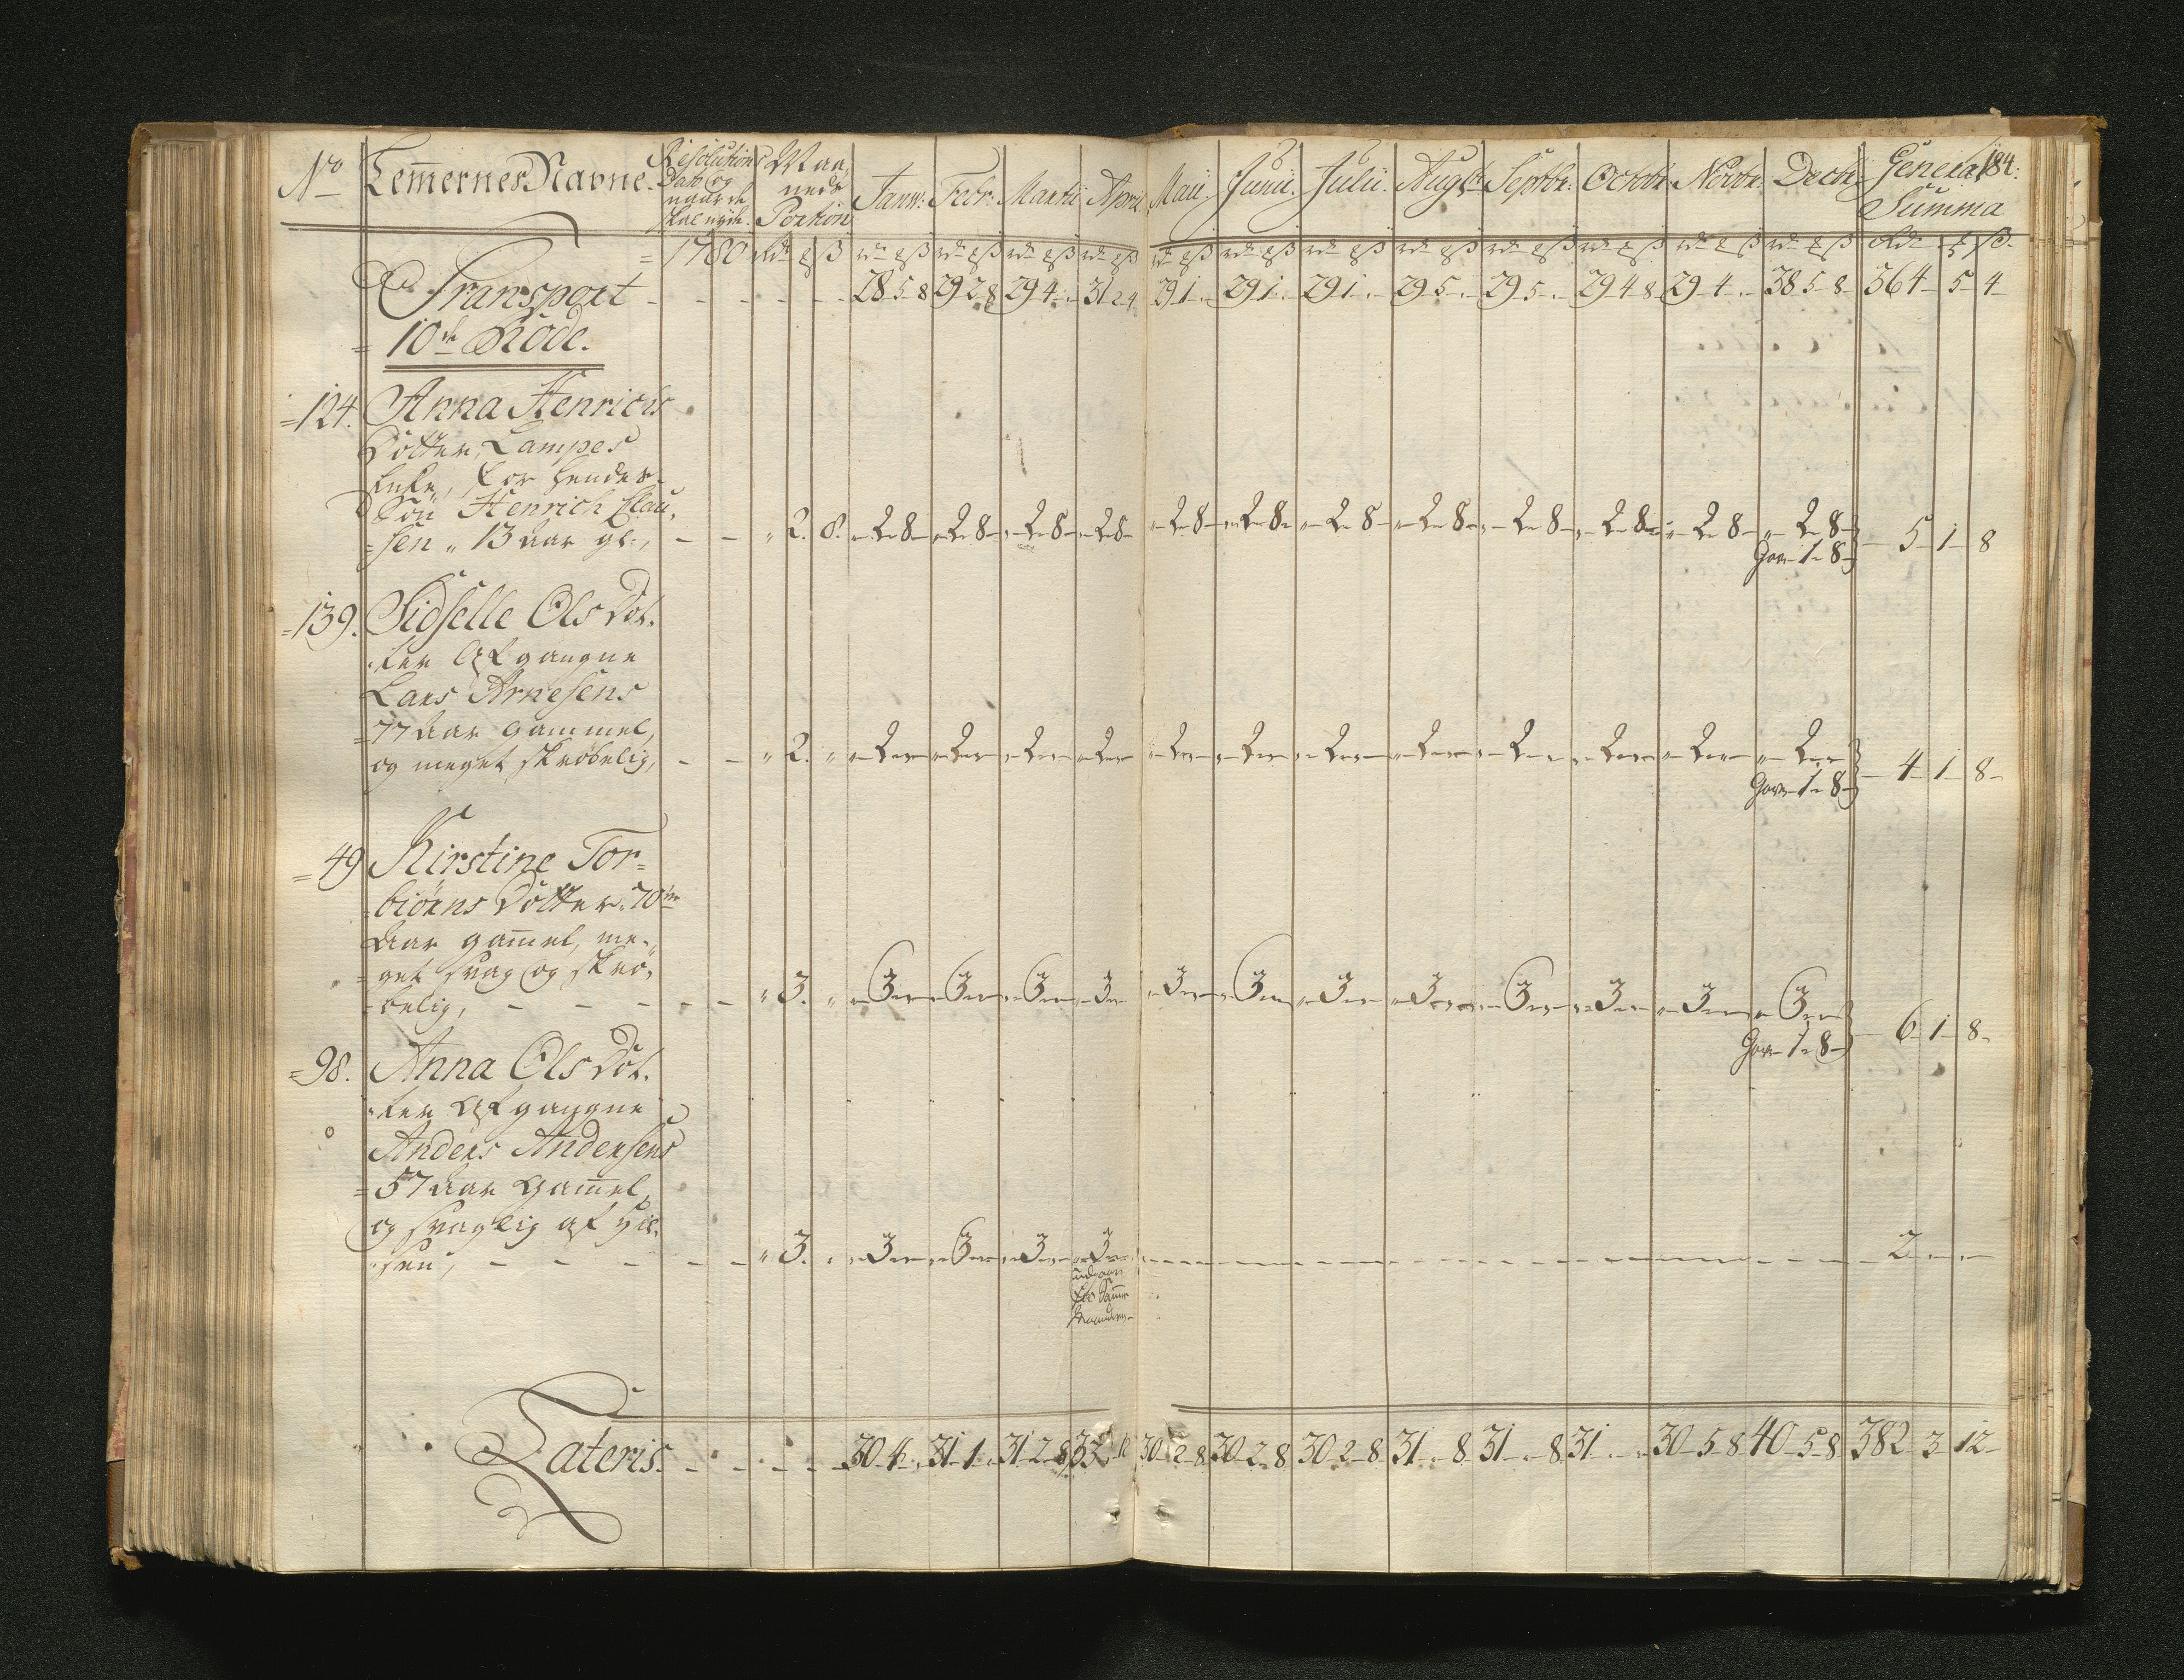 184.
No Lemmernes Navne. Resolutions Dato og naar de skal nyde. Maanedr Portion Janv: Febr: Martii April Maii. Junii. Julii. Augst: Septbr: Octobr: Novbr: Decbr: General Summa
= 1780 rdr ß rdr ß rdr ß rdr ß rdr ß rdr ß rdr ß rdr ß rdr ß rdr ß rdr ß rdr ß rdr ß rdr ß
Transport - - - - - 28 5 8 29 2 8 29 4 „ 31 2 4 29 1 „ 29 1 „ 29 1 „ 29 5 „ 29 5 „ 29 4 8 29 4 „ 38 5 8 364 5 4
= 10de Rode.
= 124. Anna Henrichs
Dotter, Lampes
Enke, for hendes
Søn Henrich Clau-
= sen „ 13 aar gl:, - - „ 2. 8. „ 2 8 „ 2 8 „ 2 8 „ 2 8 „ 2 8 „ 2 8 „ 2 8 „ 2 8 „ 2 8 „ 2 8 „ 2 8 „ 2 8 5 1 8
1 8
= 139. Sidselle Ols Dot.
ter Afgangne
Lars Arnesens
= 77 Aar gammel,
og meget skrøbelig, - - „ 2. „ „ 2 „ „ 2 „ „ 2 „ „ 2 „ „ 2 „ „ 2 „ „ 2 „ „ 2 „ „ 2 „ „ 2 „ „ 2 „ „ 2 „ 4 1 8
1 8
= 49 Kirstine Tor=
biörns Dotter. 70
Aar gamel, me-
= get svag og skrø-
belig, - - - - - „ 3. „ „ 3 „ „ 3 „ „ 3 „ „ 3 „ „ 3 „ „ 3 „ „ 3 „ „ 3 „ „ 3 „ „ 3 „ „ 3 „ „ 3 „ 6 1 8
1 8
= 98. Anna Ols Dot.
ter Afgangne
Anders Andersens
= 57 Aar Gamel,
og svaglig af Hil-
sen, - - - - - „ 3. „ „ 3 „ „ 3 „ „ 3 „ „ 3 „ 2 „ „
Lateris. - - - - 30 4 „ 31 1 „ 31 2 8 30 2 8 30 2 8 30 2 8 31 „ 8 31 „ 8 31 „ „ 30 5 8 40 5 8 382 3 12